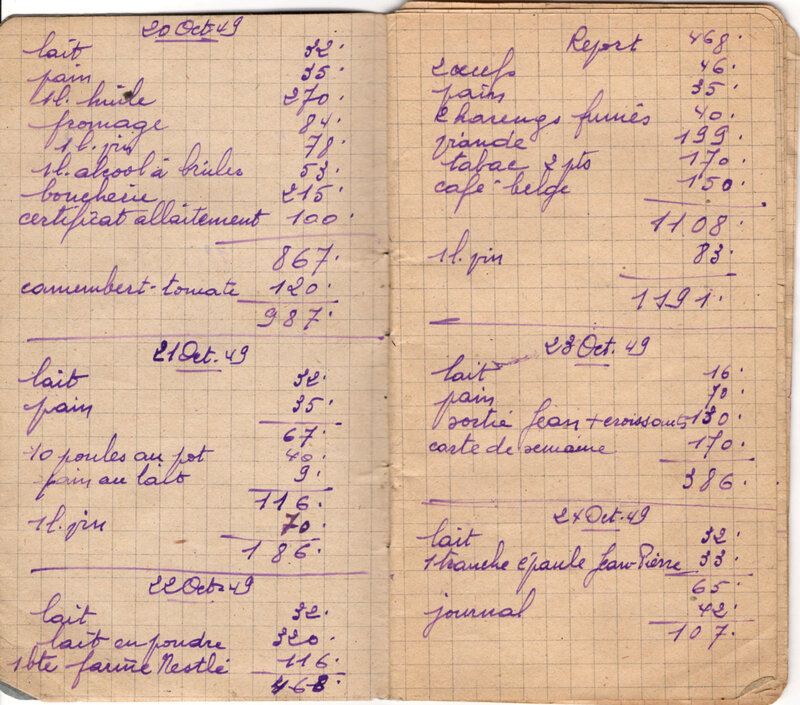 20 Oct. 49
lait 32.
pain 35.
1l. huile 270.
fromage 84.
1l. vin 78.
1l. alcool à brûler 53.
boucherie 215.
certificat allaitement 100.
867.
camembert-tomate 120.
987.
21 Oct. 49
lait 32.
pain 35.
67.
10 poules au pot 40.
pain au lait 9.
116.
1l. vin 70.
186.
22 Oct. 49
lait 32.
lait en poudre 320.
1 bte farine Nestlé 116.
468.
Report 468.
2 œufs 46.
pain 35.
2 harengs fumés 40.
viande 199.
tabac 2 pts 170.
café belge 150.
1108.
1l. vin 83.
1191.
23 Oct. 49
lait 16.
pain 70.
sortie Jean + croissants 130.
carte de semaine 170.
386.
24 Oct. 49
lait 32.
1 tranche épaule Jean-Pierre 33.
65.
journal 42.
107.